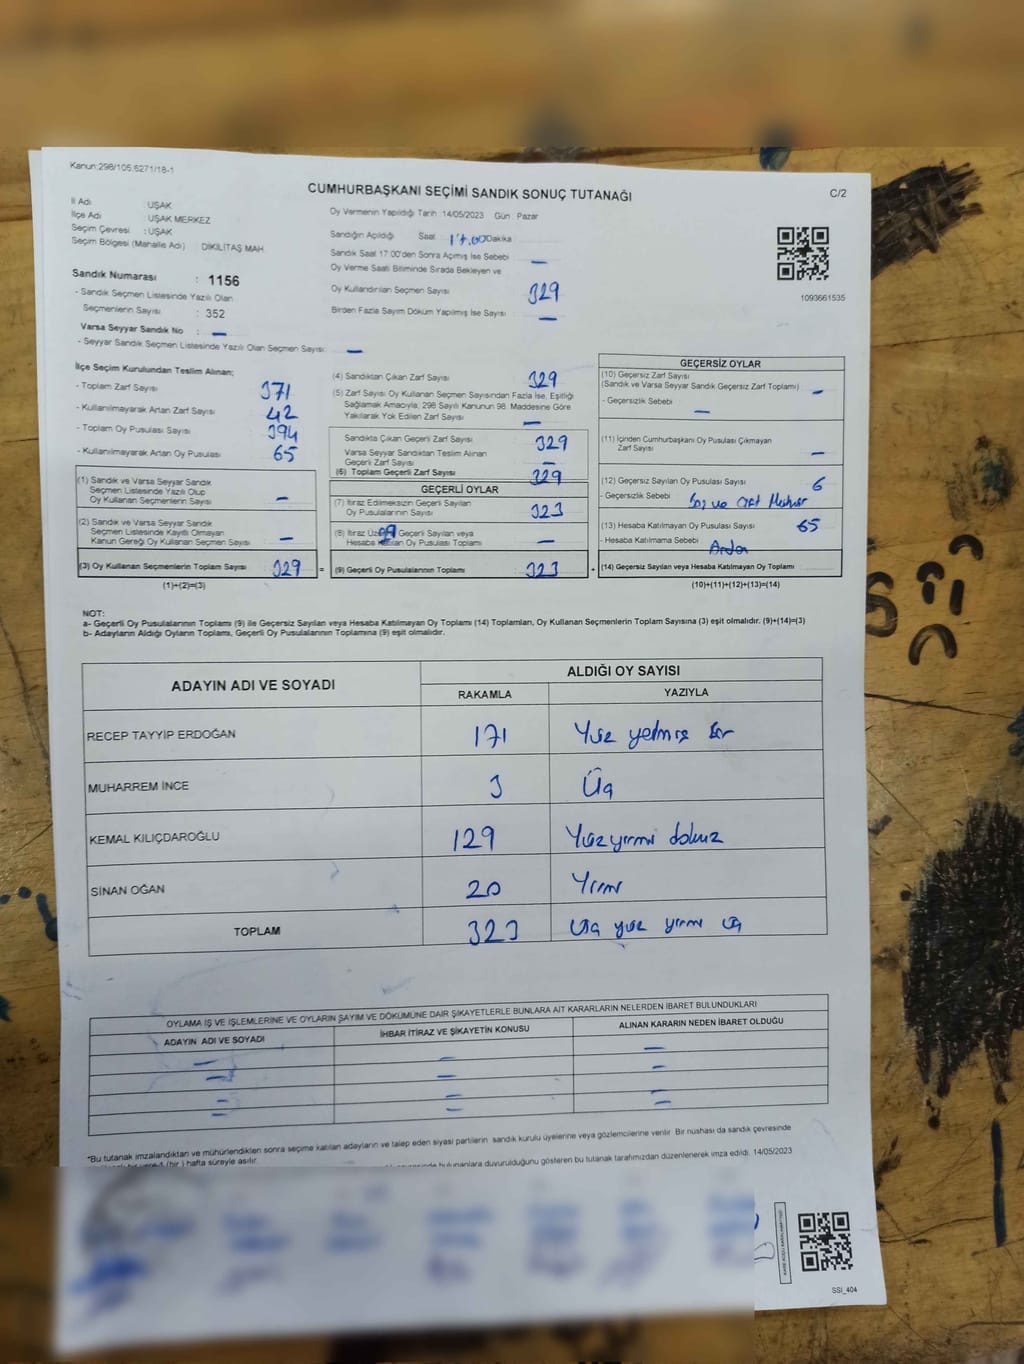 Kanun:298/105.6271/18-1
CUMHURBAŞKANI SEÇİMİ SANDIK SONUÇ TUTANAĞI
C/2
İl Adı : UŞAK
İlçe Adı : UŞAK MERKEZ
Seçim Çevresi : UŞAK
Seçim Bölgesi (Mahalle Adı) DİKİLİTAŞ MAH
Oy Vermenin Yapıldığı Tarih :14/05/2023 Gün : Pazar
Sandığın Açıldığı Saat 17.00 Dakika
Sandık Saat 17:00'den Sonra Açımış İse Sebebi —
Oy Verme Saati Bitiminde Sırada Bekleyen ve
Oy Kullandırılan Seçmen Sayısı 329
Birden Fazla Sayım Döküm Yapılmış İse Sayısı : —
1093661535
Sandık Numarası : 1156
- Sandık Seçmen Listesinde Yazılı Olan
Seçmenlerin Sayısı : 352
Varsa Seyyar Sandık No : —
- Seyyar Sandık Seçmen Listesinde Yazılı Olan Seçmen Sayısı: —
İlçe Seçim Kurulundan Teslim Alınan;
- Toplam Zarf Sayısı 371
- Kullanılmayarak Artan Zarf Sayısı 42
- Toplam Oy Pusulası Sayısı 394
- Kullanılmayarak Artan Oy Pusulası 65
(1) Sandık ve Varsa Seyyar Sandık
Seçmen Listesinde Yazılı Olup
Oy Kullanan Seçmenlerin Sayısı —
(2) Sandık ve Varsa Seyyar Sandık
Seçmen Listesinde Kayıtlı Olmayan
Kanun Gereği Oy Kullanan Seçmen Sayısı —
(3) Oy Kullanan Seçmenlerin Toplam Sayısı 329 =
(1)+(2)=(3)
(4) Sandıktan Çıkan Zarf Sayısı 329
(5) Zarf Sayısı Oy Kullanan Seçmen Sayısından Fazla İse, Eşitliği
Sağlamak Amacıyla, 298 Sayılı Kanunun 98. Maddesine Göre
Yakılarak Yok Edilen Zarf Sayısı —
Sandıkta Çıkan Geçerli Zarf Sayısı 329
Varsa Seyyar Sandıktan Teslim Alınan
Geçerli Zarf Sayısı —
(6) Toplam Geçerli Zarf Sayısı 329
GEÇERLİ OYLAR
(7) İtiraz Edilmeksizin Geçerli Sayılan
Oy Pusulalarının Sayısı 323
(8) İtiraz Geçerli Sayılan veya
Hesaba Katılan Oy Pusulası Toplamı —
(9) Geçerli Oy Pusulalarının Toplamı 323 +
GEÇERSİZ OYLAR
(10) Geçersiz Zarf Sayısı
(Sandık ve Varsa Seyyar Sandık Geçersiz Zarf Toplamı) —
- Geçersizlik Sebebi —
(11) İçinden Cumhurbaşkanı Oy Pusulası Çıkmayan
Zarf Sayısı —
(12) Geçersiz Sayılan Oy Pusulası Sayısı 6
- Geçersizlik Sebebi Boş ve Çift Mühür
(13) Hesaba Katılmayan Oy Pusulası Sayısı 65
- Hesaba Katılmama Sebebi Artan
(14) Geçersiz Sayılan veya Hesaba Katılmayan Oy Toplamı
(10)+(11)+(12)+(13)=(14)
NOT:
a- Geçerli Oy Pusulalarının Toplamı (9) ile Geçersiz Sayılan veya Hesaba Katılmayan Oy Toplamı (14) Toplamları, Oy Kullanan Seçmenlerin Toplam Sayısına (3) eşit olmalıdır. (9)+(14)=(3)
b- Adayların Aldığı Oyların Toplamı, Geçerli Oy Pusulalarının Toplamına (9) eşit olmalıdır.
ADAYIN ADI VE SOYADI
ALDIĞI OY SAYISI
RAKAMLA YAZIYLA
RECEP TAYYİP ERDOĞAN 171 Yüz yetmiş bir
MUHARREM İNCE 3 Üç
KEMAL KILIÇDAROĞLU 129 Yüzyirmi dokuz
SİNAN OĞAN 20 Yirmi
TOPLAM 323 Üç yüz yirmi üç
OYLAMA İŞ VE İŞLEMLERİNE VE OYLARIN SAYIM VE DÖKÜMÜNE DAİR ŞİKAYETLERLE BUNLARA AİT KARARLARIN NELERDEN İBARET BULUNDUKLARI
ADAYIN ADI VE SOYADI İHBAR İTİRAZ VE ŞİKAYETİN KONUSU ALINAN KARARIN NEDEN İBARET OLDUĞU
— — —
— — —
— — —
— — —
*Bu tutanak imzalandıktan ve mühürlendikten sonra seçime katılan adayların ve talep eden siyasi partilerin sandık kurulu üyelerine veya gözlemcilerine verilir. Bir nüshası da sandık çevresinde
(bir ) hafta süreyle asılır.
bulunanlara duyurulduğunu gösteren bu tutanak tarafımızdan düzenlenerek imza edildi. 14/05/2023
SSİ_404